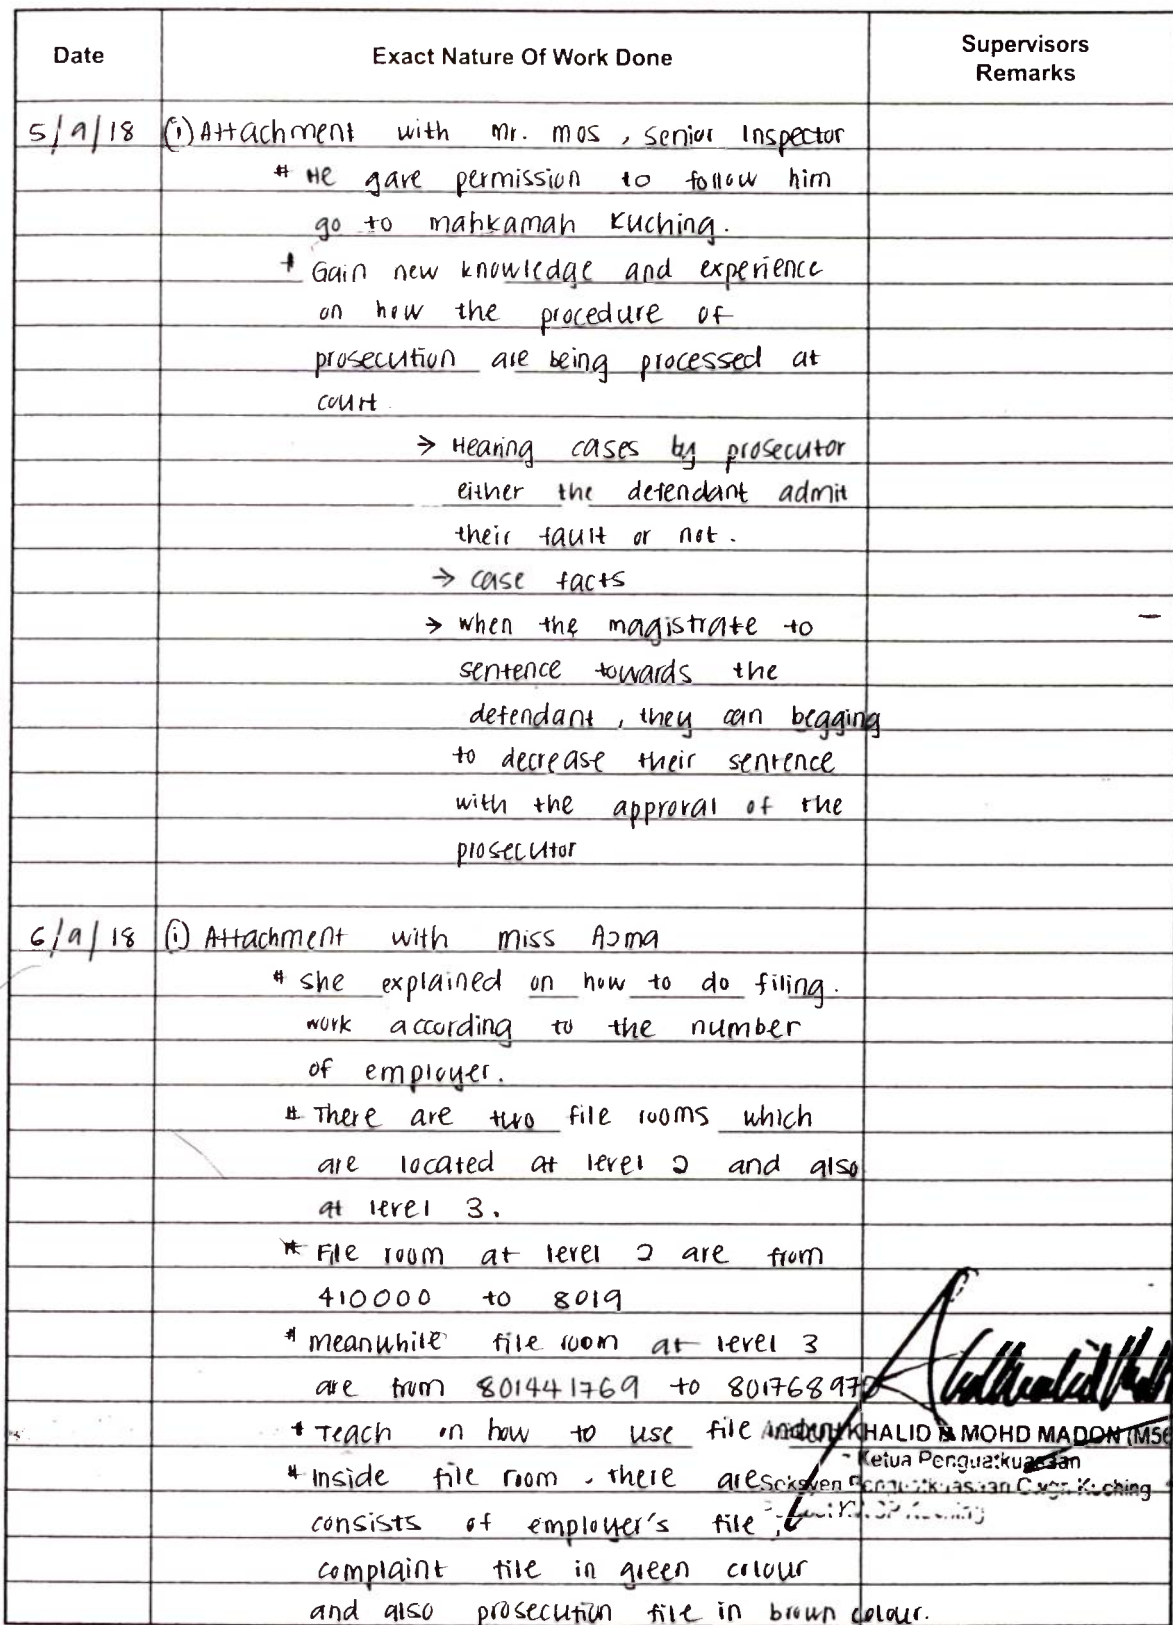 Date Exact Nature Of Work Done Supervisors
Remarks
5/9/18 (i) Attachment with Mr. Mos , Senior Inspector
* He gave permission to follow him
go to mahkamah Kuching.
* Gain new knowledge and experience
on how the procedure of
prosecution are being processed at
court.
→ Hearing cases by prosecutor
either the defendant admit
their fault or not.
→ case facts
→ when the magistrate to
sentence towards the
defendant , they can begging
to decrease their sentence
with the approval of the
prosecutor
6/9/18 (i) Attachment with Miss Asma
* She explained on how to do filing.
work according to the number
of employer.
* There are two file rooms which
are located at level 2 and also
at level 3.
* File room at level 2 are from
410000 to 8019
* Meanwhile file room at level 3
are from 801441769 to 80176897
* Teach on how to use file
KHALID B MOHD MADON
Ketua Penguatkuasaan
* Inside file room , there are
Kuching
consists of employer's file ,
complaint file in green colour
and also prosecution file in brown colour.